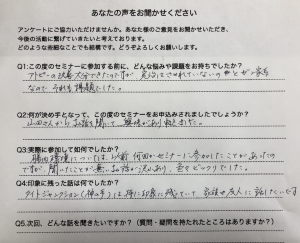 あなたの声をお聞かせください
アンケートにご協力いただけませんか。あなた様のご意見をお聞かせいただき、
今後の活動に繋げていきたいと考えております。
どのような些細なことでも結構です。どうぞよろしくお願いします。
Q1:この度のセミナーに参加する前に、どんな悩みや課題をお持ちでしたか?
アトピーの改善
なので それを 課題としました。
Q2:何が決め手となって、この度のセミナーをお申込みされましたでしょうか?
山田さんから お話を聞いて 興味があり
Q3:実際に参加して如何でしたか?
腸内環境については、以前 何回かセミナーに参加したことがあったの
ですが、聞いたことが無いお話が沢山あり、
Q4:印象に残った話は何でしたか?
タイトジャンクション(神の手)は特に印象に残っていて、家族や友人に話したいです
Q5:次回、どんな話を聞きたいですか?(質問・疑問を持たれたところはありますか?)